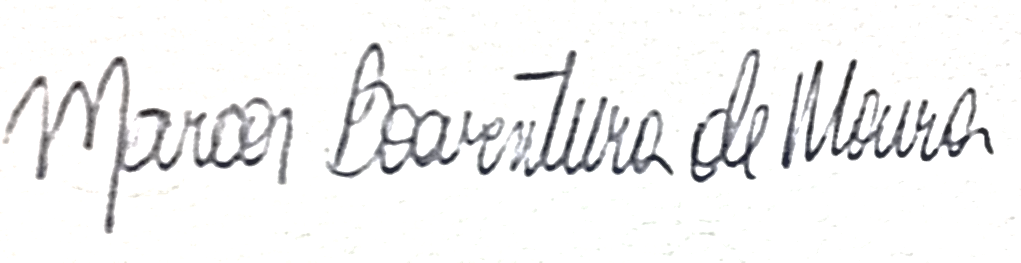 Marcos Boaventura de Moura